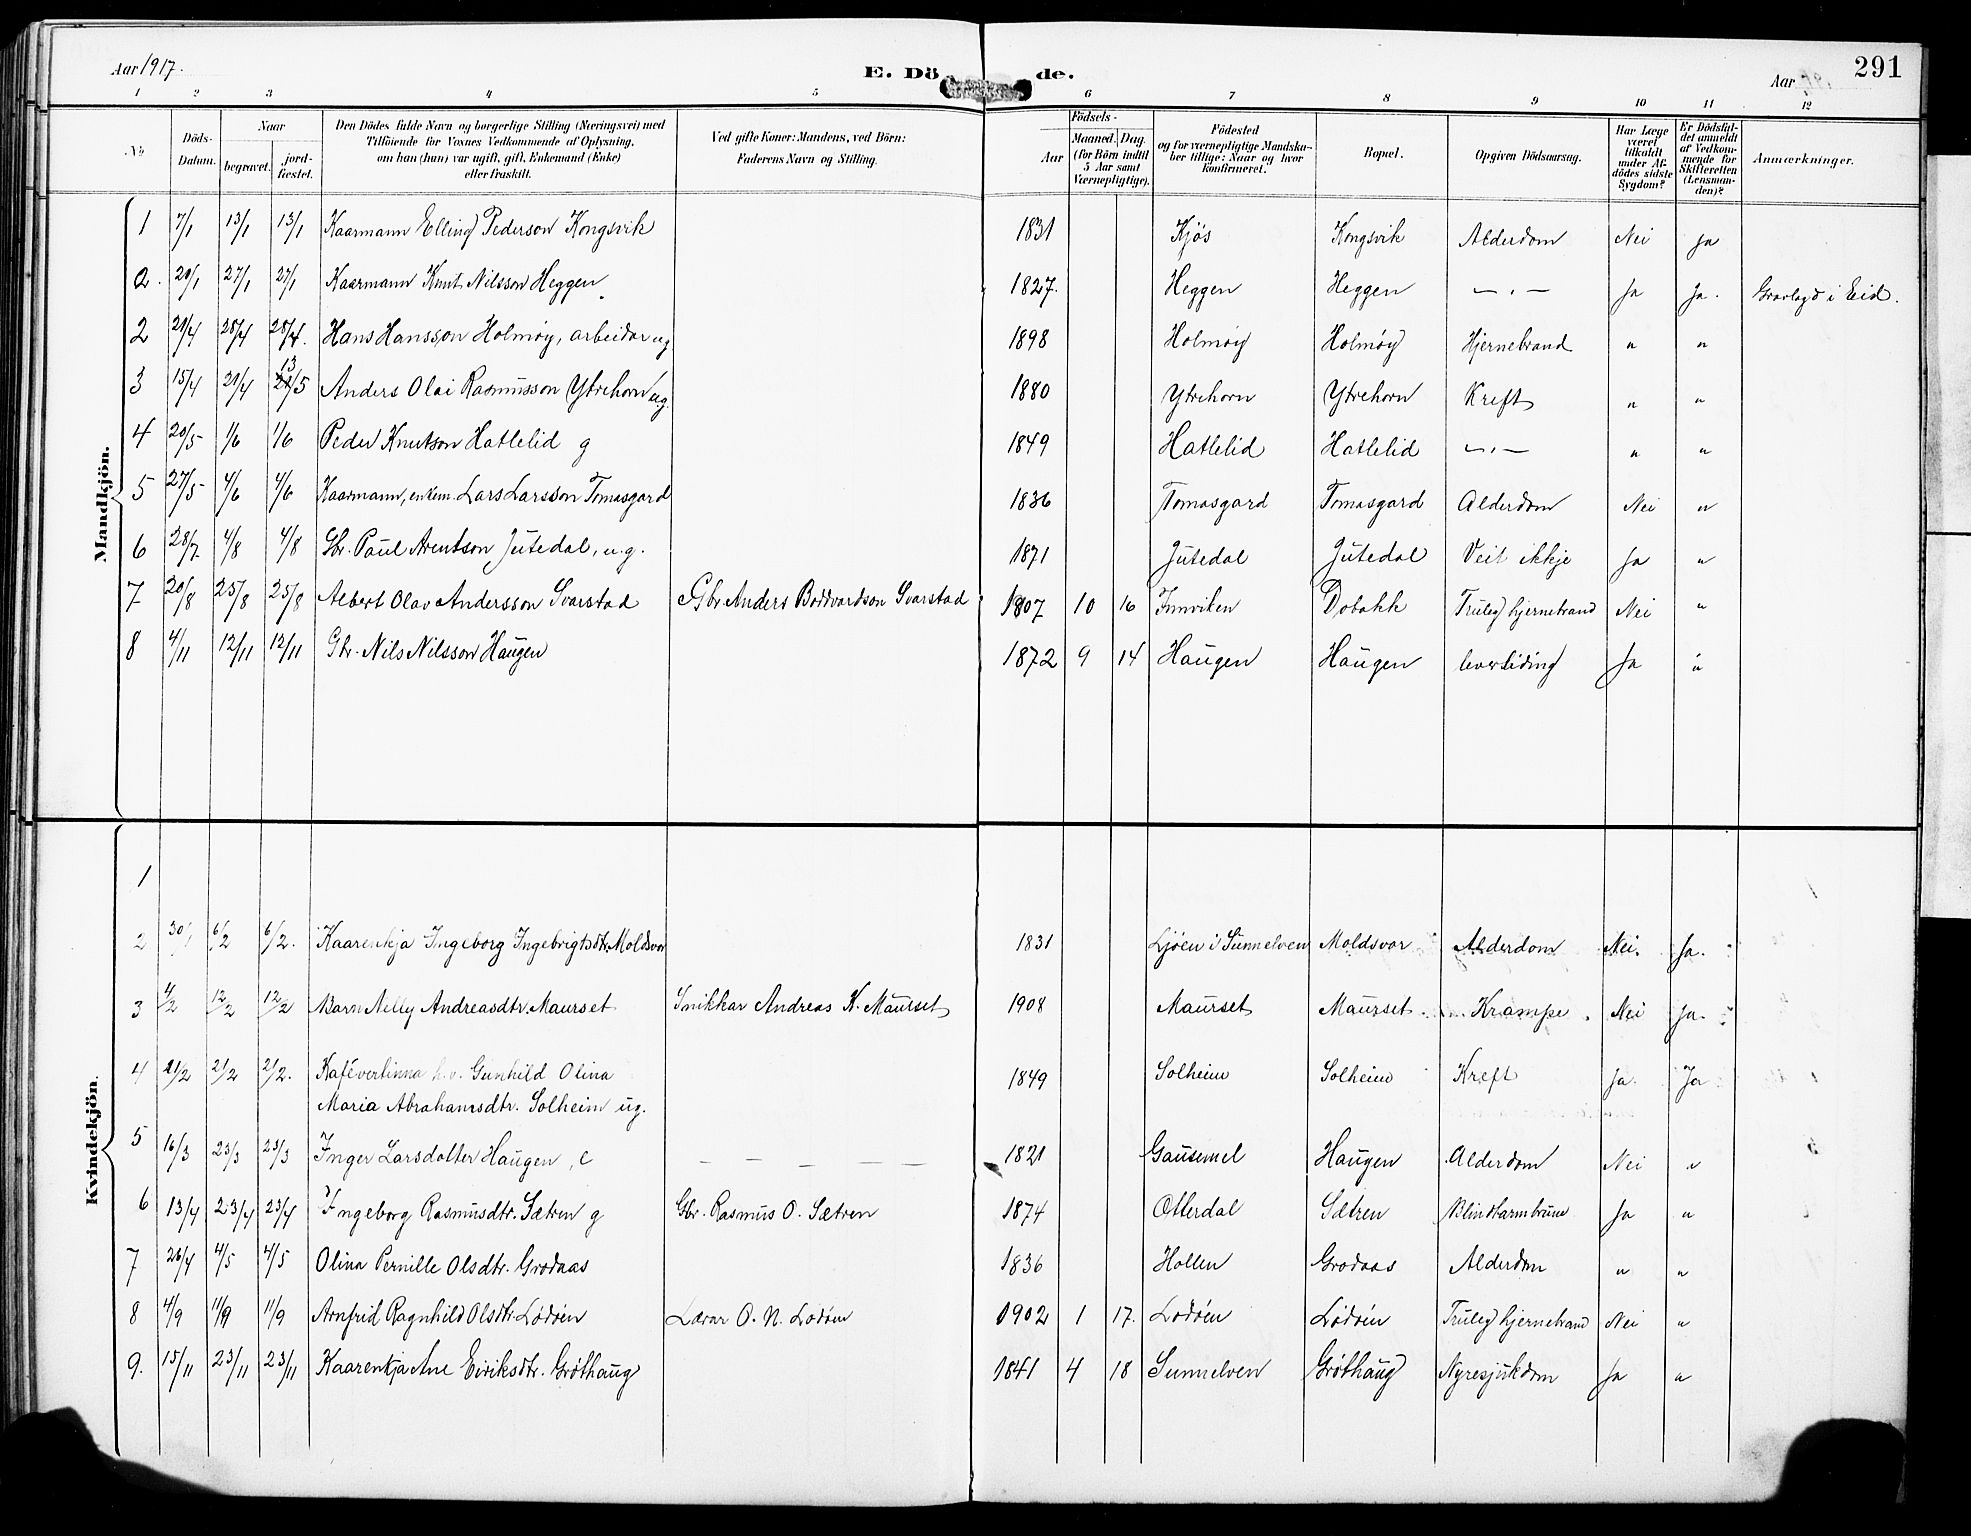 Aar 1917.
E. Dö de.
Aar
291
1 2 3 4 5 6 7 8 9 10 11 12
No
Döds-Datum.
Naar
begravet.
jord-fæstet.
Den Dödes fulde Navn og borgerlige Stilling (Næringsvei) med
Tilföiende for Voxnes Vedkommende af Oplysning,
om han (hun) var ugift, gift, Enkemand (Enke)
eller fraskilt.
Ved gifte Koner: Mandens, ved Börn:
Faderens Navn og Stilling.
Födsels-
Aar
Maaned. Dag.
(for Börn indtil
5 Aar samt
Værnepligtige).
Födested
og for værnepligtige Mandska-
ber tillige: Naar og hvor
konfirmeret.
Bopæl.
Opgiven Dödsaarsag.
Har Læge
været
tilkaldt
under Af-
dödes sidste
Sygdom?
Er Dödsfal-
det anmeldt
af Vedkom-
mende for
Skifteretten
(Lensman-
den)?
Anmærkninger.
Mandkjön.
1 7/1 13/1 13/1 Kaarmann Elling Pederson Kongsvik 1831 Kjøs Kongsvik Alderdom Nei Ja
2. 20/1 27/1 27/1 Kaarmann Knut Nilsson Heggen 1827. Heggen Heggen — „ — Ja Ja. Gravlagd i Eid.
2 21/4 28/4 28/4. Hans Hansson Holmøy, arbeidar ug 1898 Holmøy Holmøy Hjernebrand " "
3 15/4 21/4 13/5 Anders Olai Rasmusson Ytrehorn ug. 1880 Ytrehorn Ytrehorn Kreft " "
4 20/5 1/6 1/6 Peder Knutson Hatlelid g 1849 Hatlelid Hatlelid — „ — " "
5 27/5 4/6 4/6 Kaarmann, enkem. Lars Larsson Tomasgard 1836 Tomasgard Tomasgard Alderdom Nei "
6 28/7 4/8 4/8 Gbr. Paul Arentson Jutedal, u.g. 1871 Jutedal Jutedal Veit ikkje Ja "
7 20/8 25/8 25/8 Albert Olav Andersson Svarstad Gbr Anders Boddvardson Svarstad 1907 10 16 Innviken Dobakk Truleg hjernebrand Nei "
8 4/11 12/11 12/11 Gbr. Nils Nilsson Haugen 1872 9 14 Haugen Haugen leverliding Ja "
Kvindekjön.
1
2 30/1 6/2 6/2. Kaarenkja Ingeborg Ingebrigtsdtr. Moldsvor 1831 Ljøen i Sunnelven Moldsvor Alderdom Nei. Ja.
3 4/2 12/2 12/2 Barn Nelly Andreasdtr. Maurset Snikkar Andreas K. Maurset 1908 Maurset Maurset Krampe Nei Ja.
4 21/2 21/2. Kafévertinna h.v. Gunhild Olina
Maria Abrahamsdtr. Solheim ug. 1849 Solheim Solheim Kreft Ja. Ja
5 16/3 23/3 23/3 Inger Larsdotter Haugen, e — — — — — 1821 Gausemel Haugen Alderdom Nei "
6 13/4 23/4 23/4 Ingeborg Rasmusdtr. Sætren g Gbr. Rasmus O. Sætren 1874 Otterdal Sætren Blindtarmbrune Ja "
7 26/4 4/5 4/5 Olina Pernille Olsdtr. Grodaas 1836 Hollen Grodaas Alderdom " "
8 4/9 11/9 11/9 Arnfrid Ragnhild Olsdtr. Lødøen Lærar O. N. Lødøen 1902 1 17. Lødøen Lødøen Truleg hjernebrand Nei "
9. 15/11 23/11 23/11 Kaarenkja Ane Eiriksdtr. Grøthaug 1841 4 18 Sunnelven Grøthaug Nyresjukdom Ja "